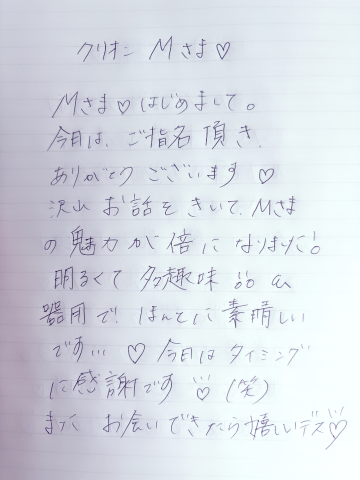 クリオン Mさま♡
Mさま♡はじめまして。
今日は、ご指名頂き、
ありがとうございます ♡
沢山 お話をきいて、Mさま
の魅力が倍になりました!
明るくて 多趣味
器用で! ほんとに素晴しい
です… ♡ 今日はタイミング
に感謝です ♡ (笑)
また お会いできたら嬉しいデス♡